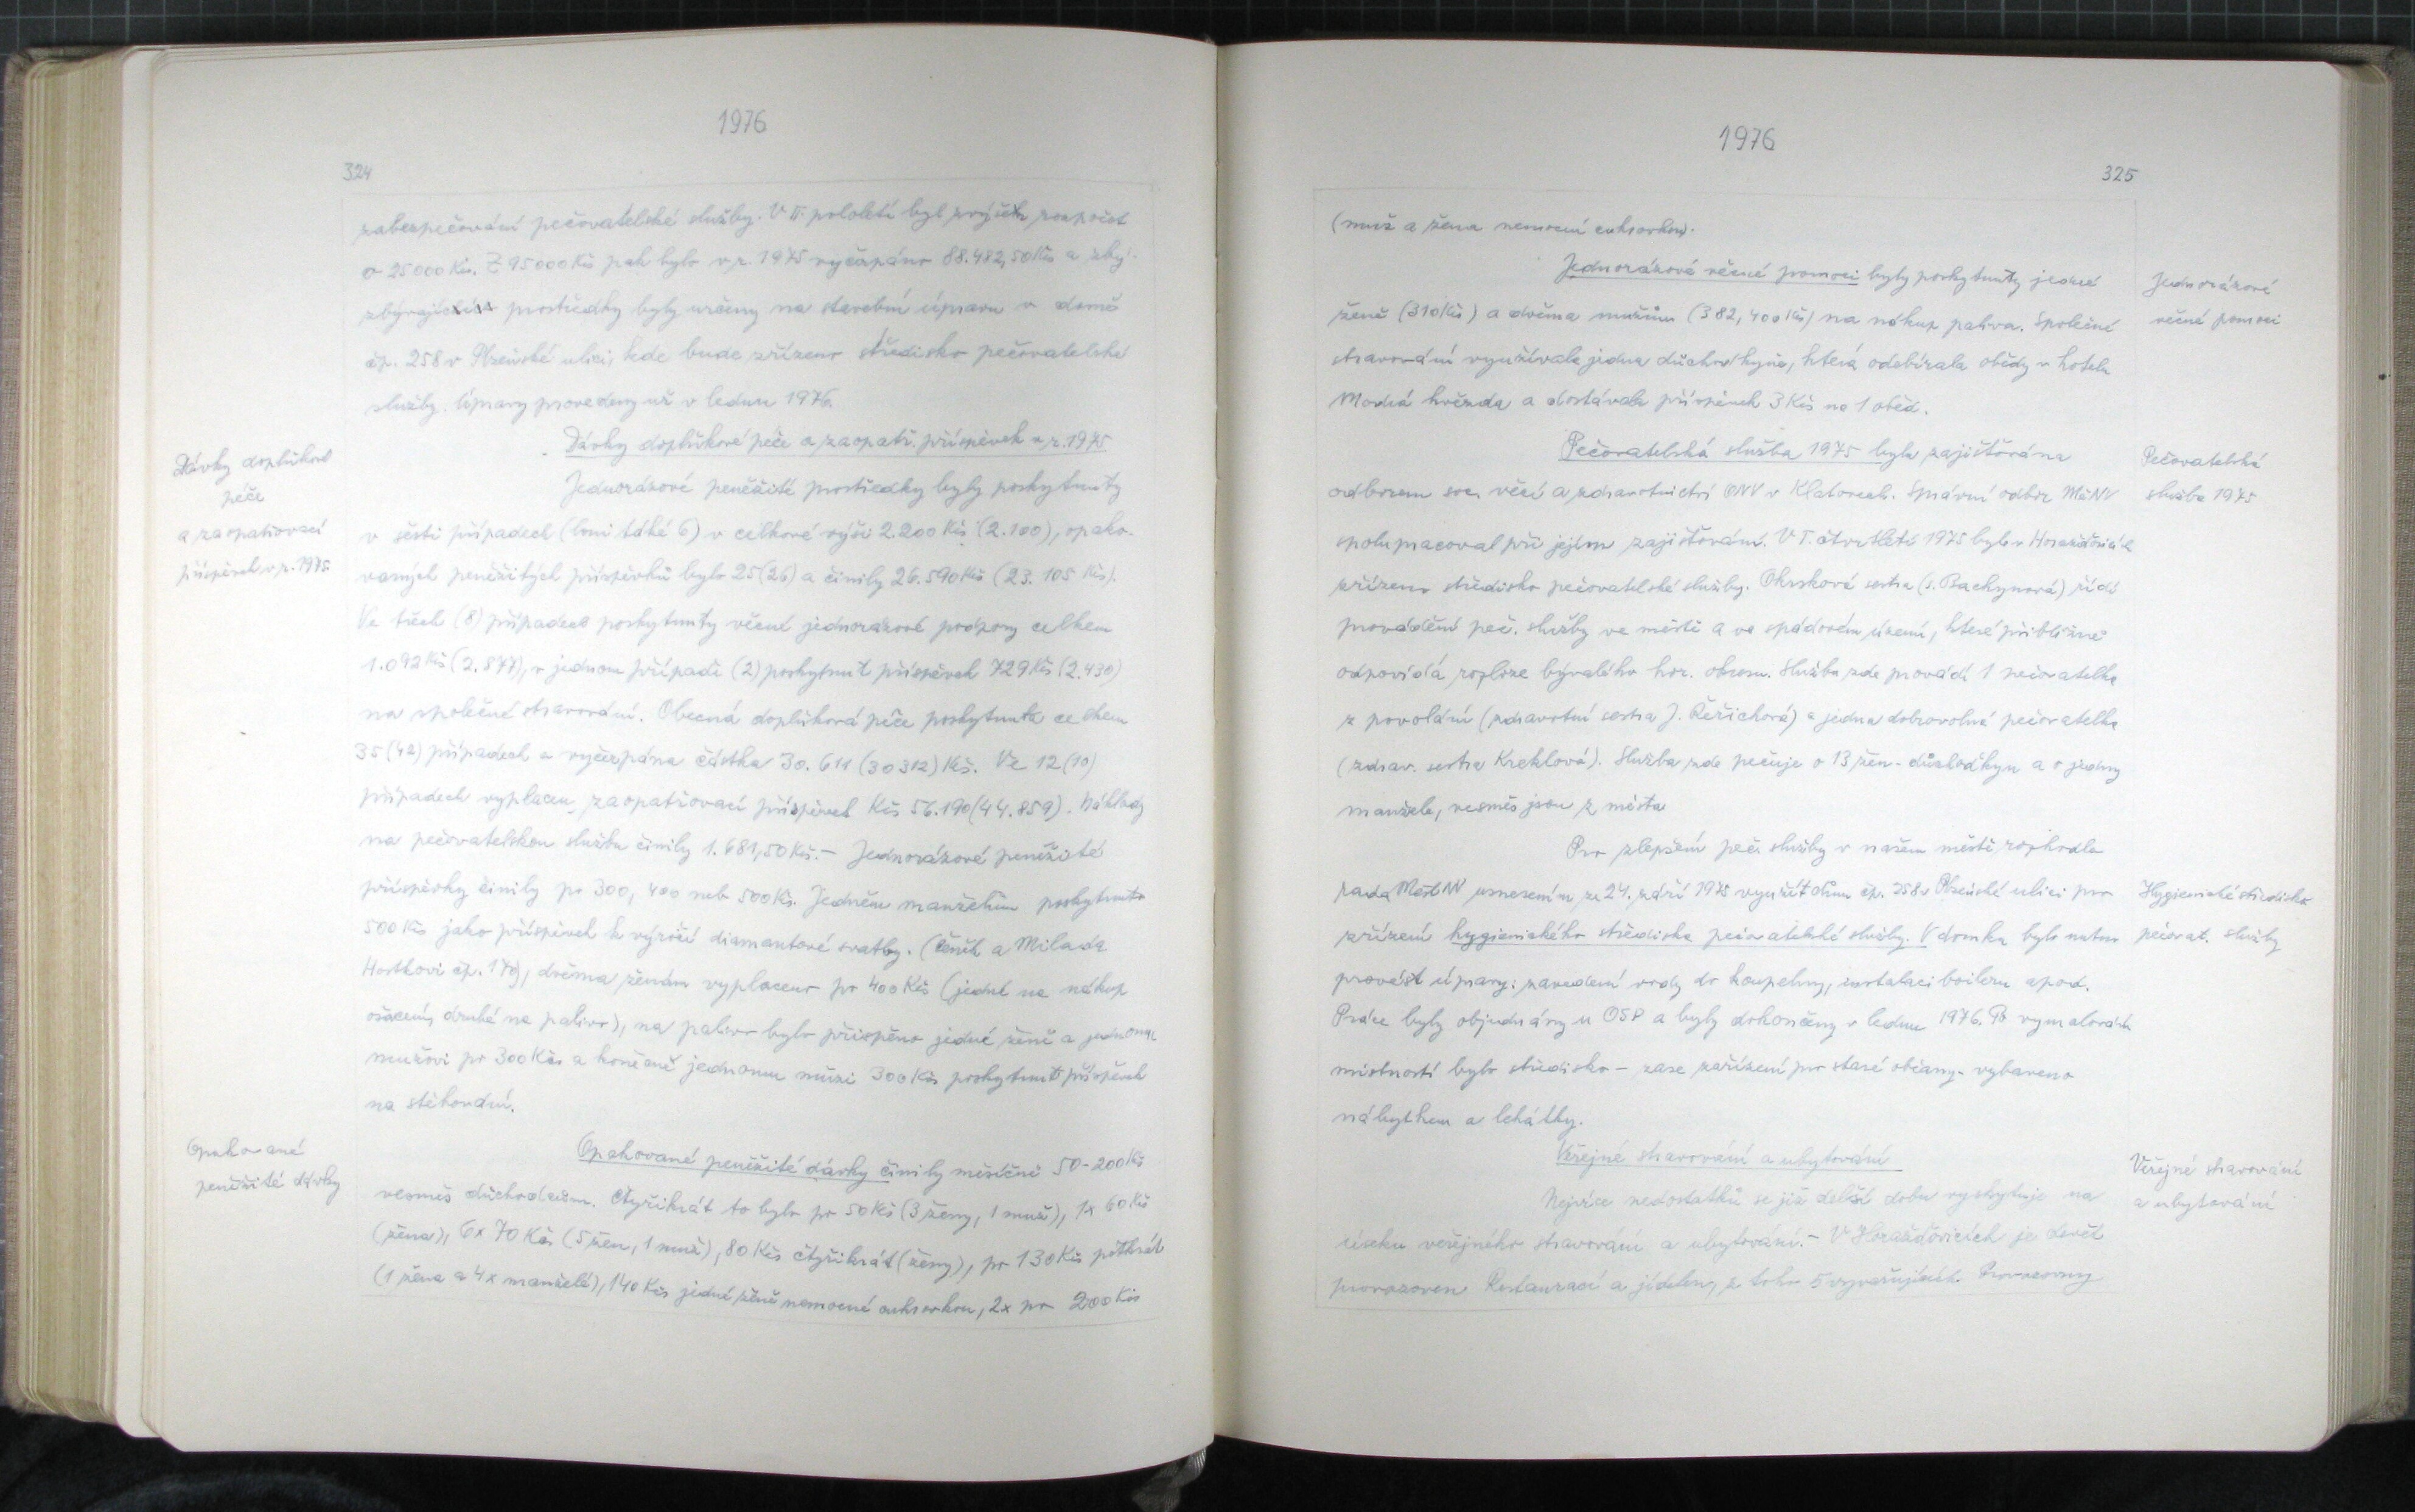 1976
324
zabezpečování pečovatelské služby. V II. pololetí byl zvýšen rozpočet
o 25000 Kčs. Z 95000 Kčs pak bylo v r. 1975 vyčerpáno 88.482,50 Kčs a zbý-
prostředky byly určeny na stavební úpravu v domě
čp. 258 v Plzeňské ulici, kde bude zřízeno středisko pečovatelské
služby. Úpravy provedeny už v lednu 1976.
Dávky doplňkové péče a zaopatř. příspěvek v r. 1975
Dávky doplňkové
péče
a zaopatřovací
příspěvek v r. 1975.
Jednorázové peněžité prostředky byly poskytnuty
v šesti případech (loni také 6) v celkové výši 2.200 Kčs (2.100), opako-
vaných peněžitých příspěvků bylo 25 (26) a činily 26.590 Kčs (23.105 Kčs).
Ve třech (8) případech poskytnuty věcné jednorázové podpory celkem
1.092 Kčs (2.877), v jednom případě (2) poskytnut příspěvek 729 Kčs (2.430)
na společné stravování. Obecná doplňková péče poskytnuta celkem
35 (42) případech a vyčerpána částka 30.611 (30312) Kčs. Ve 12 (10)
případech vyplacen zaopatřovací příspěvek Kčs 56.190 (44.859). Náklady
na pečovatelskou službu činily 1.681,50 Kčs. - Jednorázové peněžité
příspěvky činily po 300, 400 neb 500 Kčs. Jedněm manželům poskytnuto
500 Kčs jako příspěvek k výročí diamantové svatby. (Čeněk a Milada
Hostkovi čp. 170), dvěma ženám vyplaceno po 400 Kčs (jedné na nákup
ošacení, druhé na palivo), na palivo bylo přispěno jedné ženě a jednomu
mužovi po 300 Kčs a konečně jednomu muži 300 Kčs poskytnut příspěvek
na stěhování.
Opakované
peněžité dávky
Opakované peněžité dávky činily měsíčně 50-200 Kčs
vesměs důchodcům. Čtyřikrát to bylo po 50 Kčs (3 ženy, 1 muž), 1x 60 Kčs
(žena), 6x 70 Kčs (5 žen, 1 muž), 80 Kčs čtyřikrát (ženy), po 130 Kčs pětkrát
(1 žena a 4x manželé), 140 Kčs jedné ženě nemocné cukrovkou, 2x po 200 Kčs
1976
325
(muž a žena nemocní cukrovkou).
Jednorázové věcné pomoci byly poskytnuty jedné
ženě (310 Kčs) a dvěma mužům (382, 400 Kčs) na nákup paliva. Společné
stravování využívala jedna důchodkyně, která odebírala obědy v hotelu
Modrá hvězda a dostávala příspěvek 3 Kčs na 1 oběd.
Jednorázové
věcné pomoci
Pečovatelská služba 1975 byla zajišťována
odborem soc. věcí a zdravotnictví ONV v Klatovech. Správní odbor MěNV
spolupracoval při jejím zajišťování. V I. čtvrtletí 1975 bylo v Horažďovicích
zřízeno středisko pečovatelské služby. Okrsková sestra (s. Bachynová) řídí
provádění peč. služby ve městě a ve spádovém území, které přibližně
odpovídá rozloze bývalého hor. okresu. Službu zde provádí 1 pečovatelka
z povolání (zdravotní sestra J. Řeřichová) a jedna dobrovolná pečovatelka
(zdrav. sestra Kreklová). Služba zde pečuje o 13 žen - důchodkyn a o jedny
manžele, vesměs jsou z města
Pečovatelská
služba 1975
Pro zlepšení peč. služby v našem městě rozhodla
rada MěstNV usnesením ze 24. září 1975 využít dům čp. 258 v Plzeňské ulici pro
zřízení hygienického střediska pečovatelské služby. V domku bylo nutno
provést úpravy: zavedení vody do koupelny, instalaci boileru apod.
Práce byly objednány u OSP a byly dokončeny v lednu 1976. Po vymalování
místností bylo středisko - zase zařízení pro staré občany - vybaveno
nábytkem a lehátky.
Hygienické středisko
pečovat. služby
Veřejné stravování a ubytování
Nejvíce nedostatků se již delší dobu vyskytuje na
úseku veřejného stravování a ubytování. - V Horažďovicích je devět
provozoven Restaurací a jídelen, z toho 5 vyvařujících. Provozovny
Veřejné stravování
a ubytování